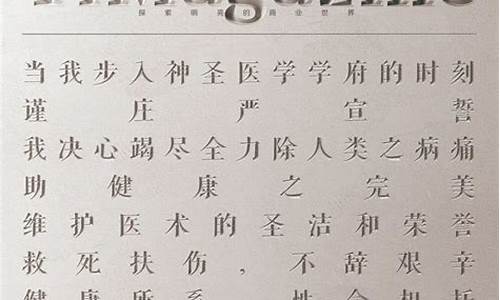 YiMagazine
探索明亮的商业世界
当我步入神圣医学学府的时刻
谨庄严宣誓
我决心竭尽全力除人类之病痛
助健康之完美
维护医术的圣洁和荣誉
救死扶伤,不辞艰辛
健康所系 性命相托